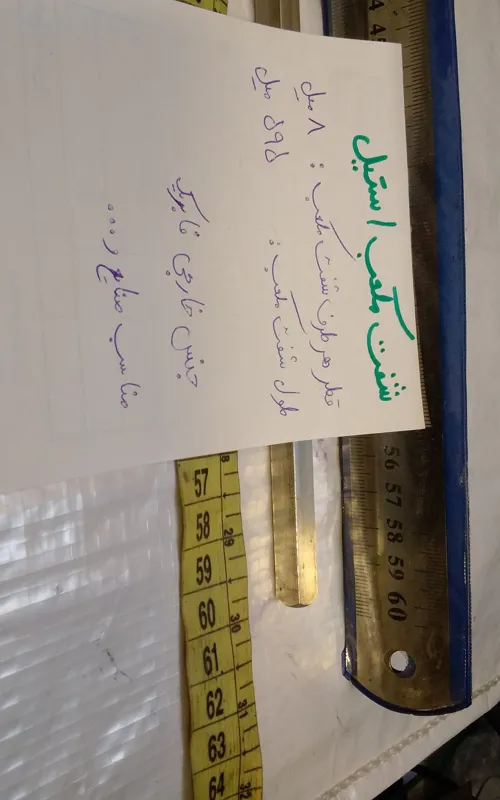 شفت مکعب استیل
قطر هر طرف شفت مکعب : ۸ میل
طول شفت مکعب : ۵۹۵ میل
جنس خارجی تایوک
مناسب صنایع و ...
45
56 57 58 59 60
57 58 59 60 61 62 63 64
29 30 31